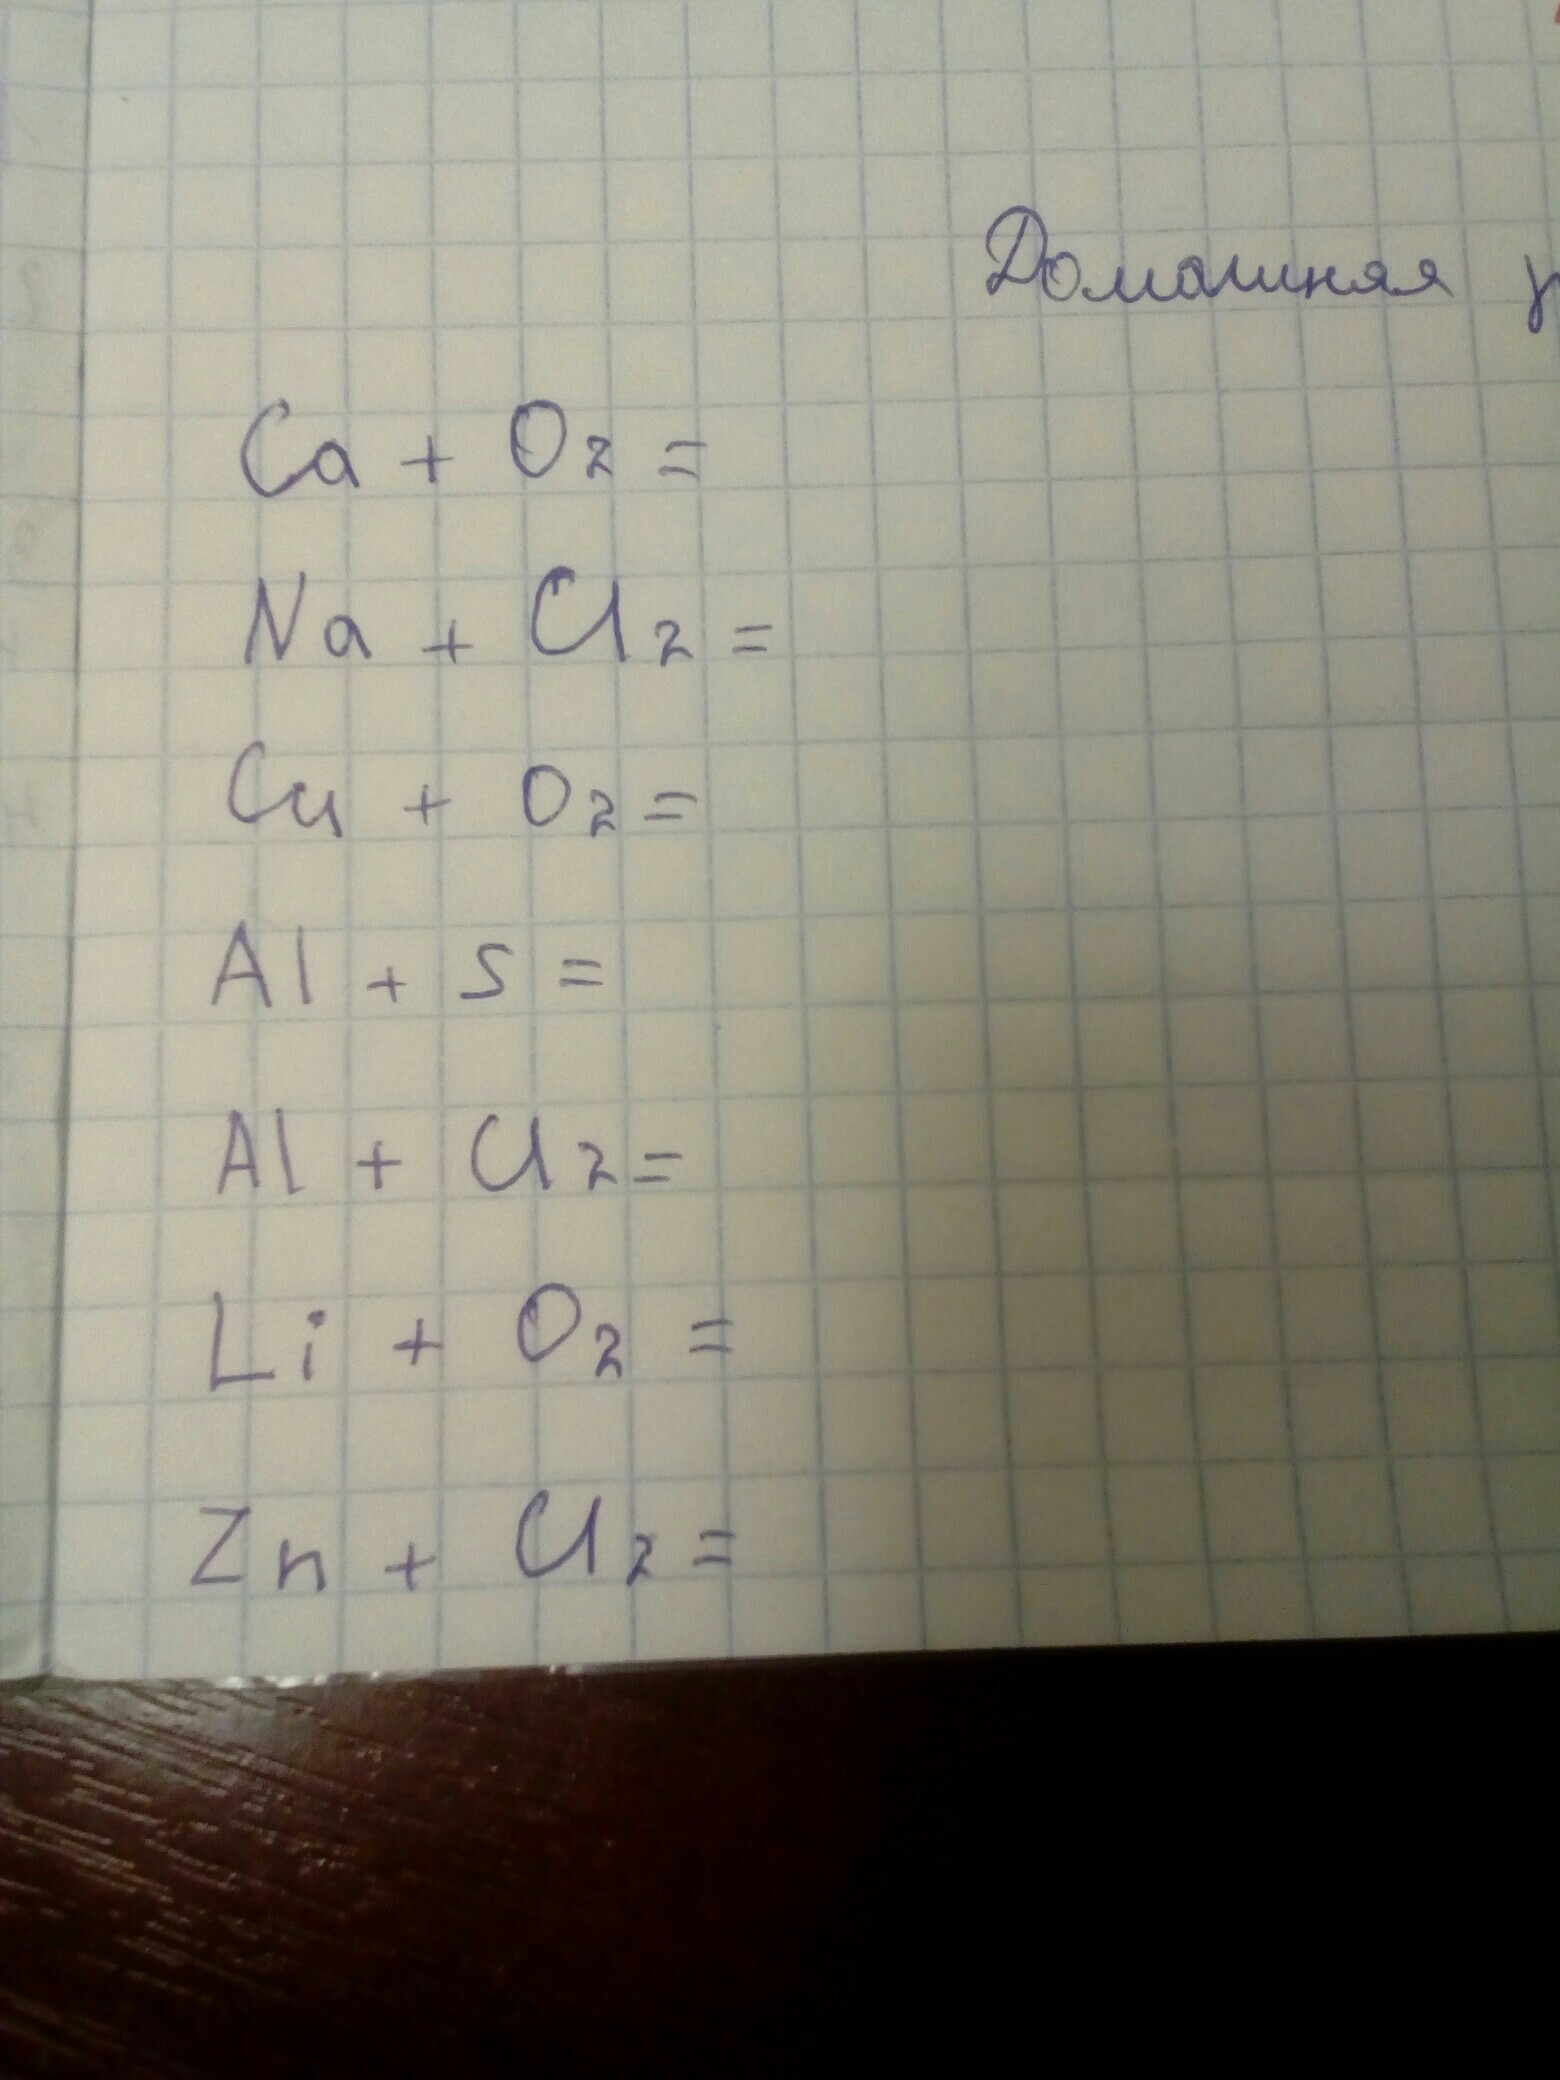 Домашняя
Ca + O₂ =
Na + Cl₂ =
Cu + O₂ =
Al + S =
Al + Cl₂ =
Li + O₂ =
Zn + Cl₂ =